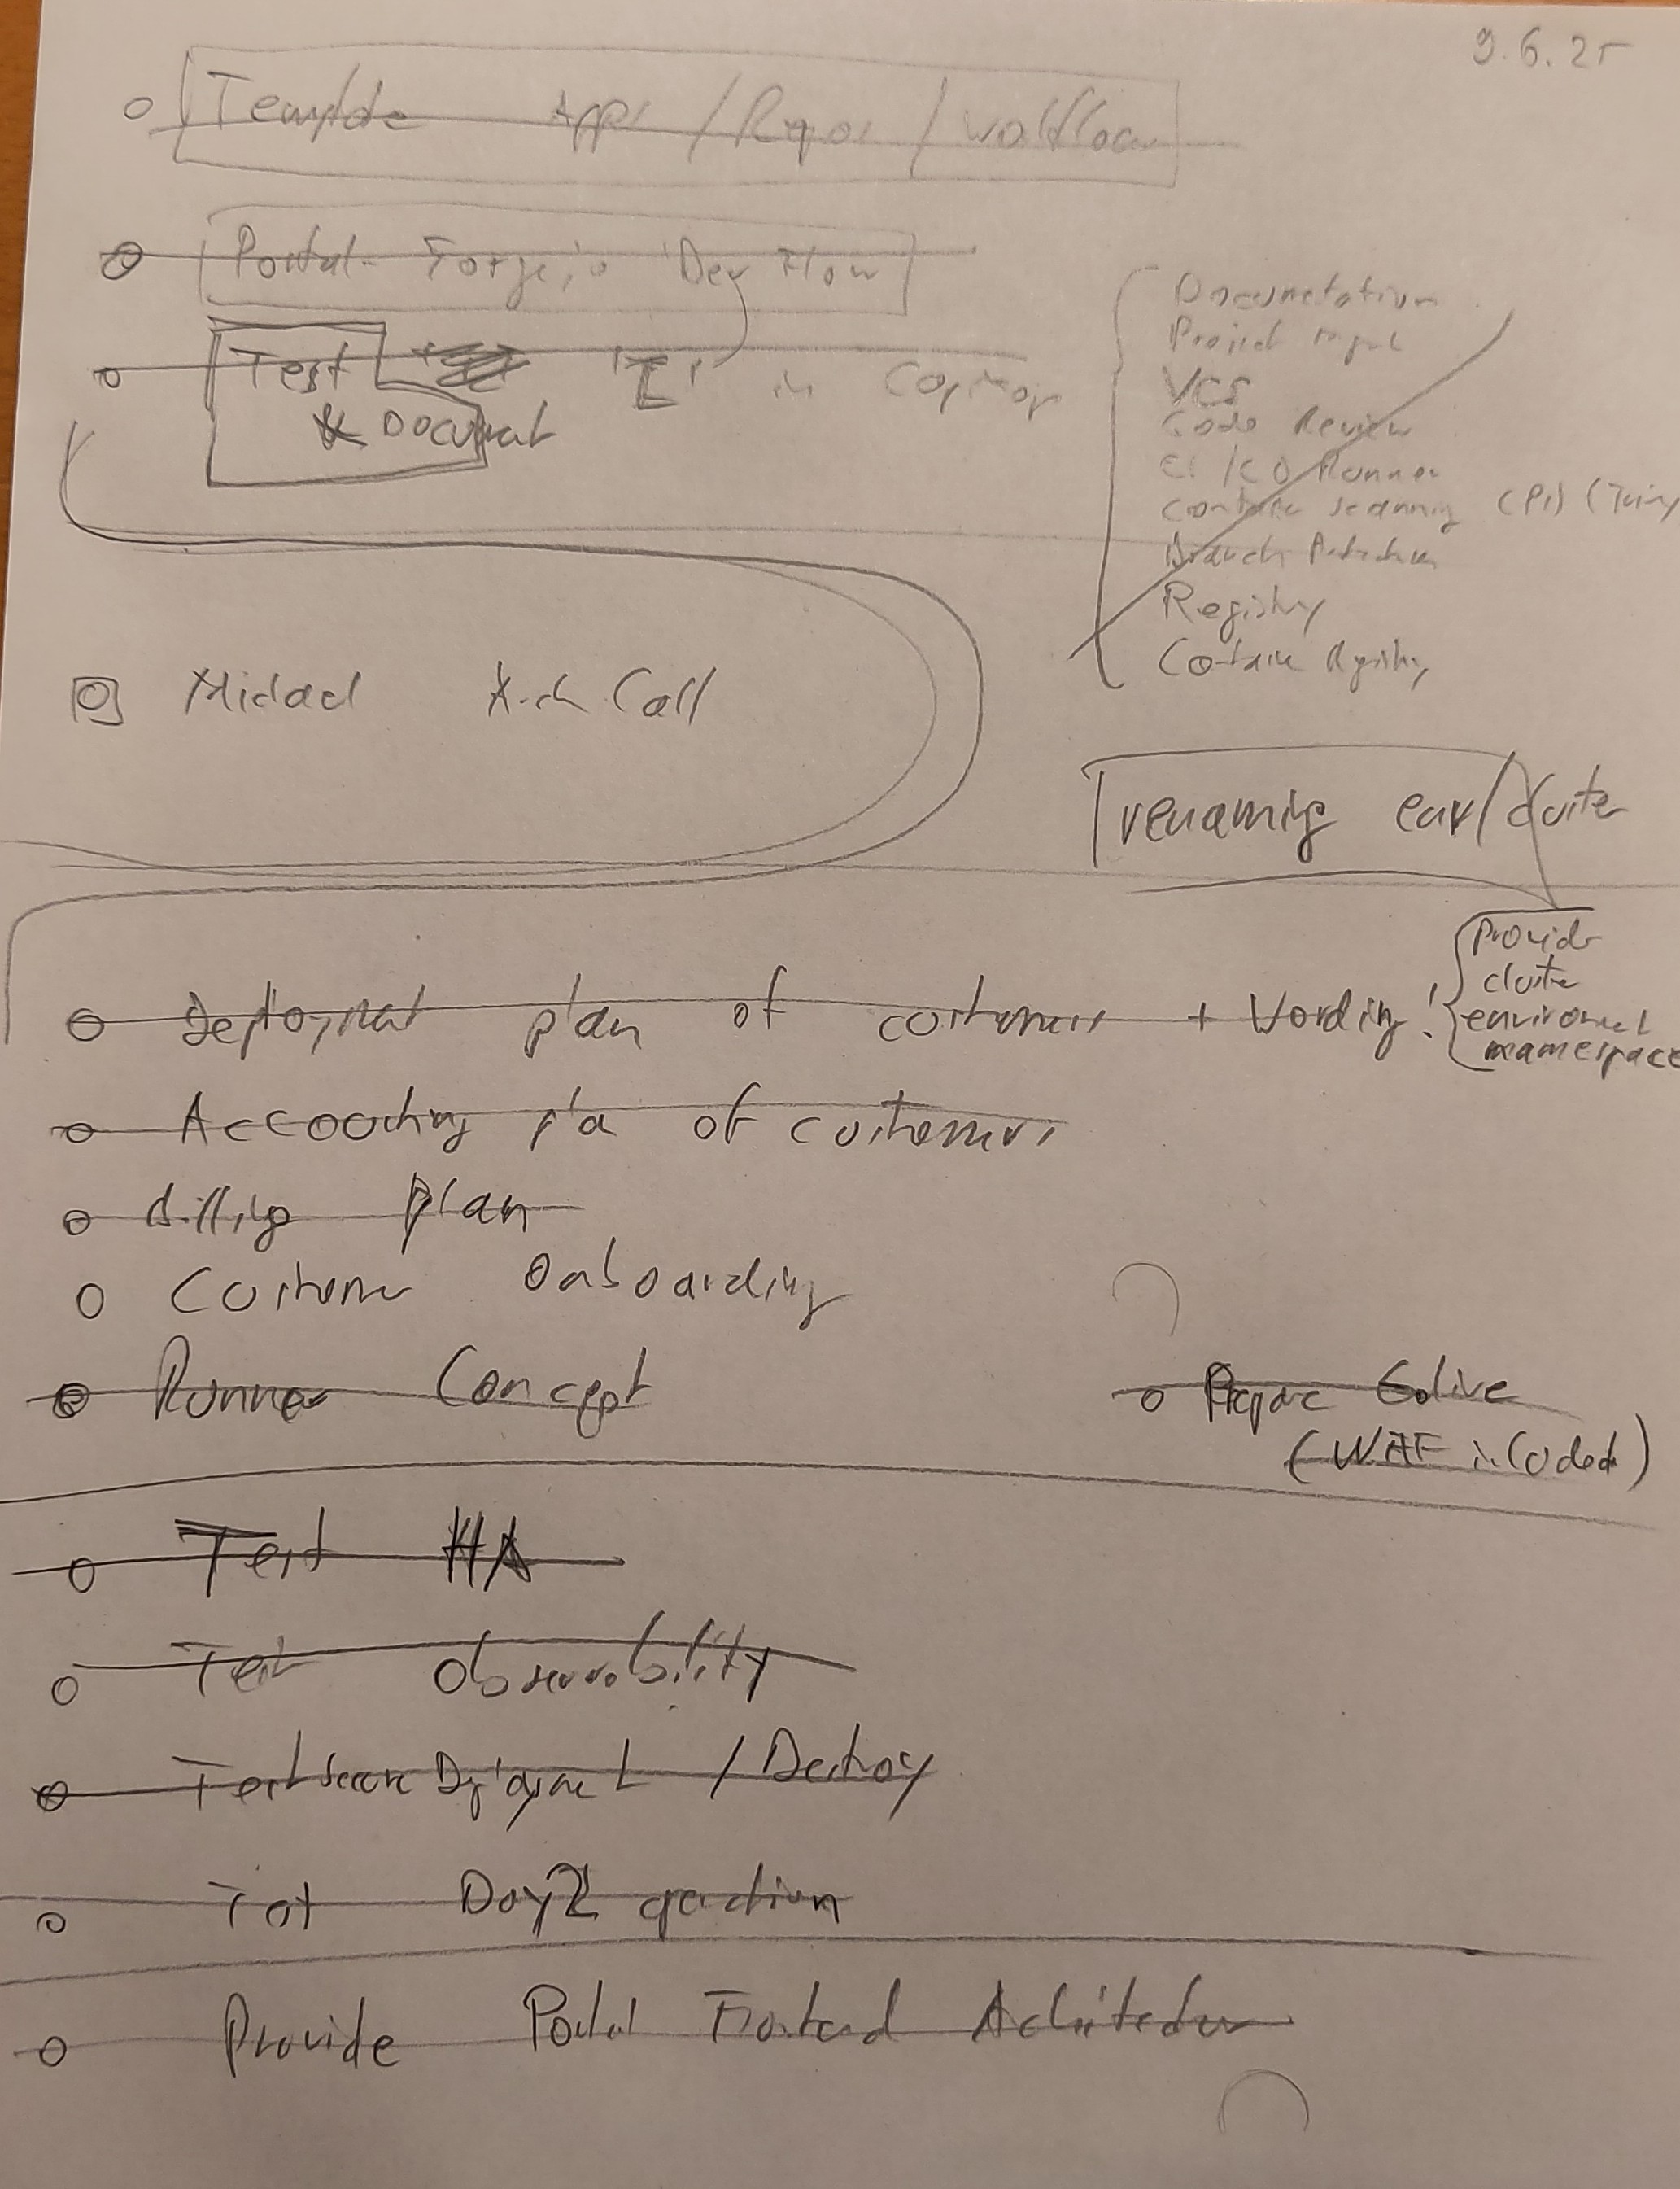 9.6.25
Template Apps / Repos / Workflow
Portal - Forgejo Dev Flow
Test in
& Document
Documentation
Project mgmt
VCS
Code Review
CI/CD Runner
Container scanning
Branch Protection
Registry
Container Registry
Call
renaming env/cluster
Deployment plan of customers + Wording!
Provider
cluster
environment
namespace
Accounting pla of customers
Billing plan
Customer Onboarding
Runner Concept
Prepare Golive
(WAF included)
Test HA
Test Observability
Test secure Deployment / Destroy
Test Day2 operation
Provide Portal Frontend Architecture